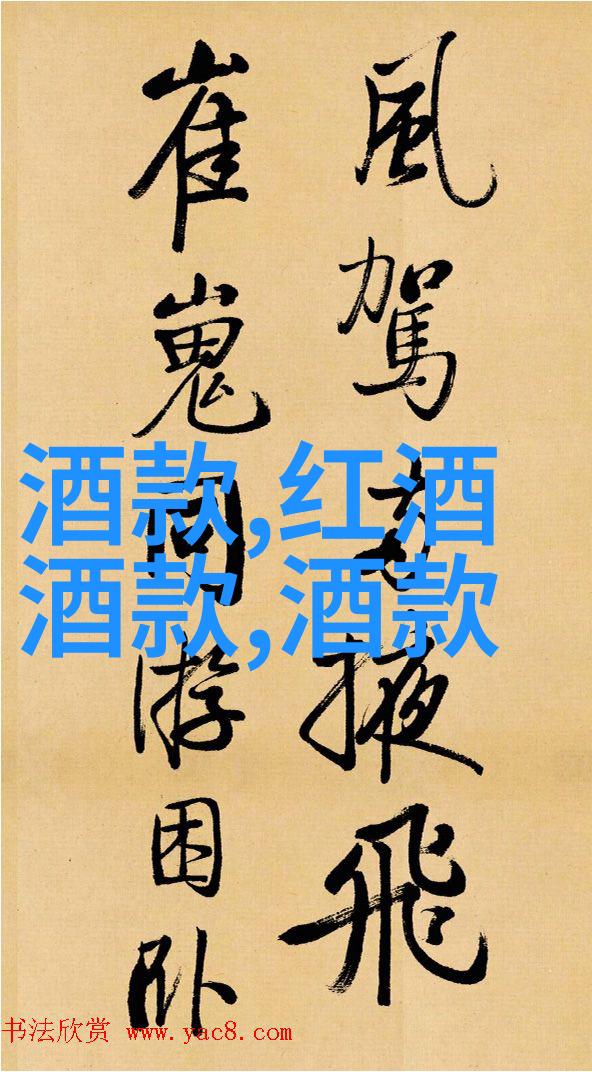 風駕掖飛
崔嵬同游困卧
酒款,红酒
酒款,酒款
书法欣赏 www.yac8.com